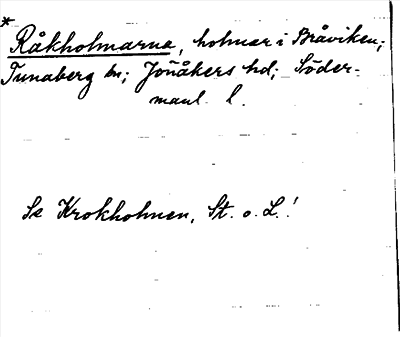 *
Råkholmarna, holmar i Bråviken;
Tunaberg sn; Jönåkers hd; Söder-
manl. l.
Se Krokholmen, St. o. L.!